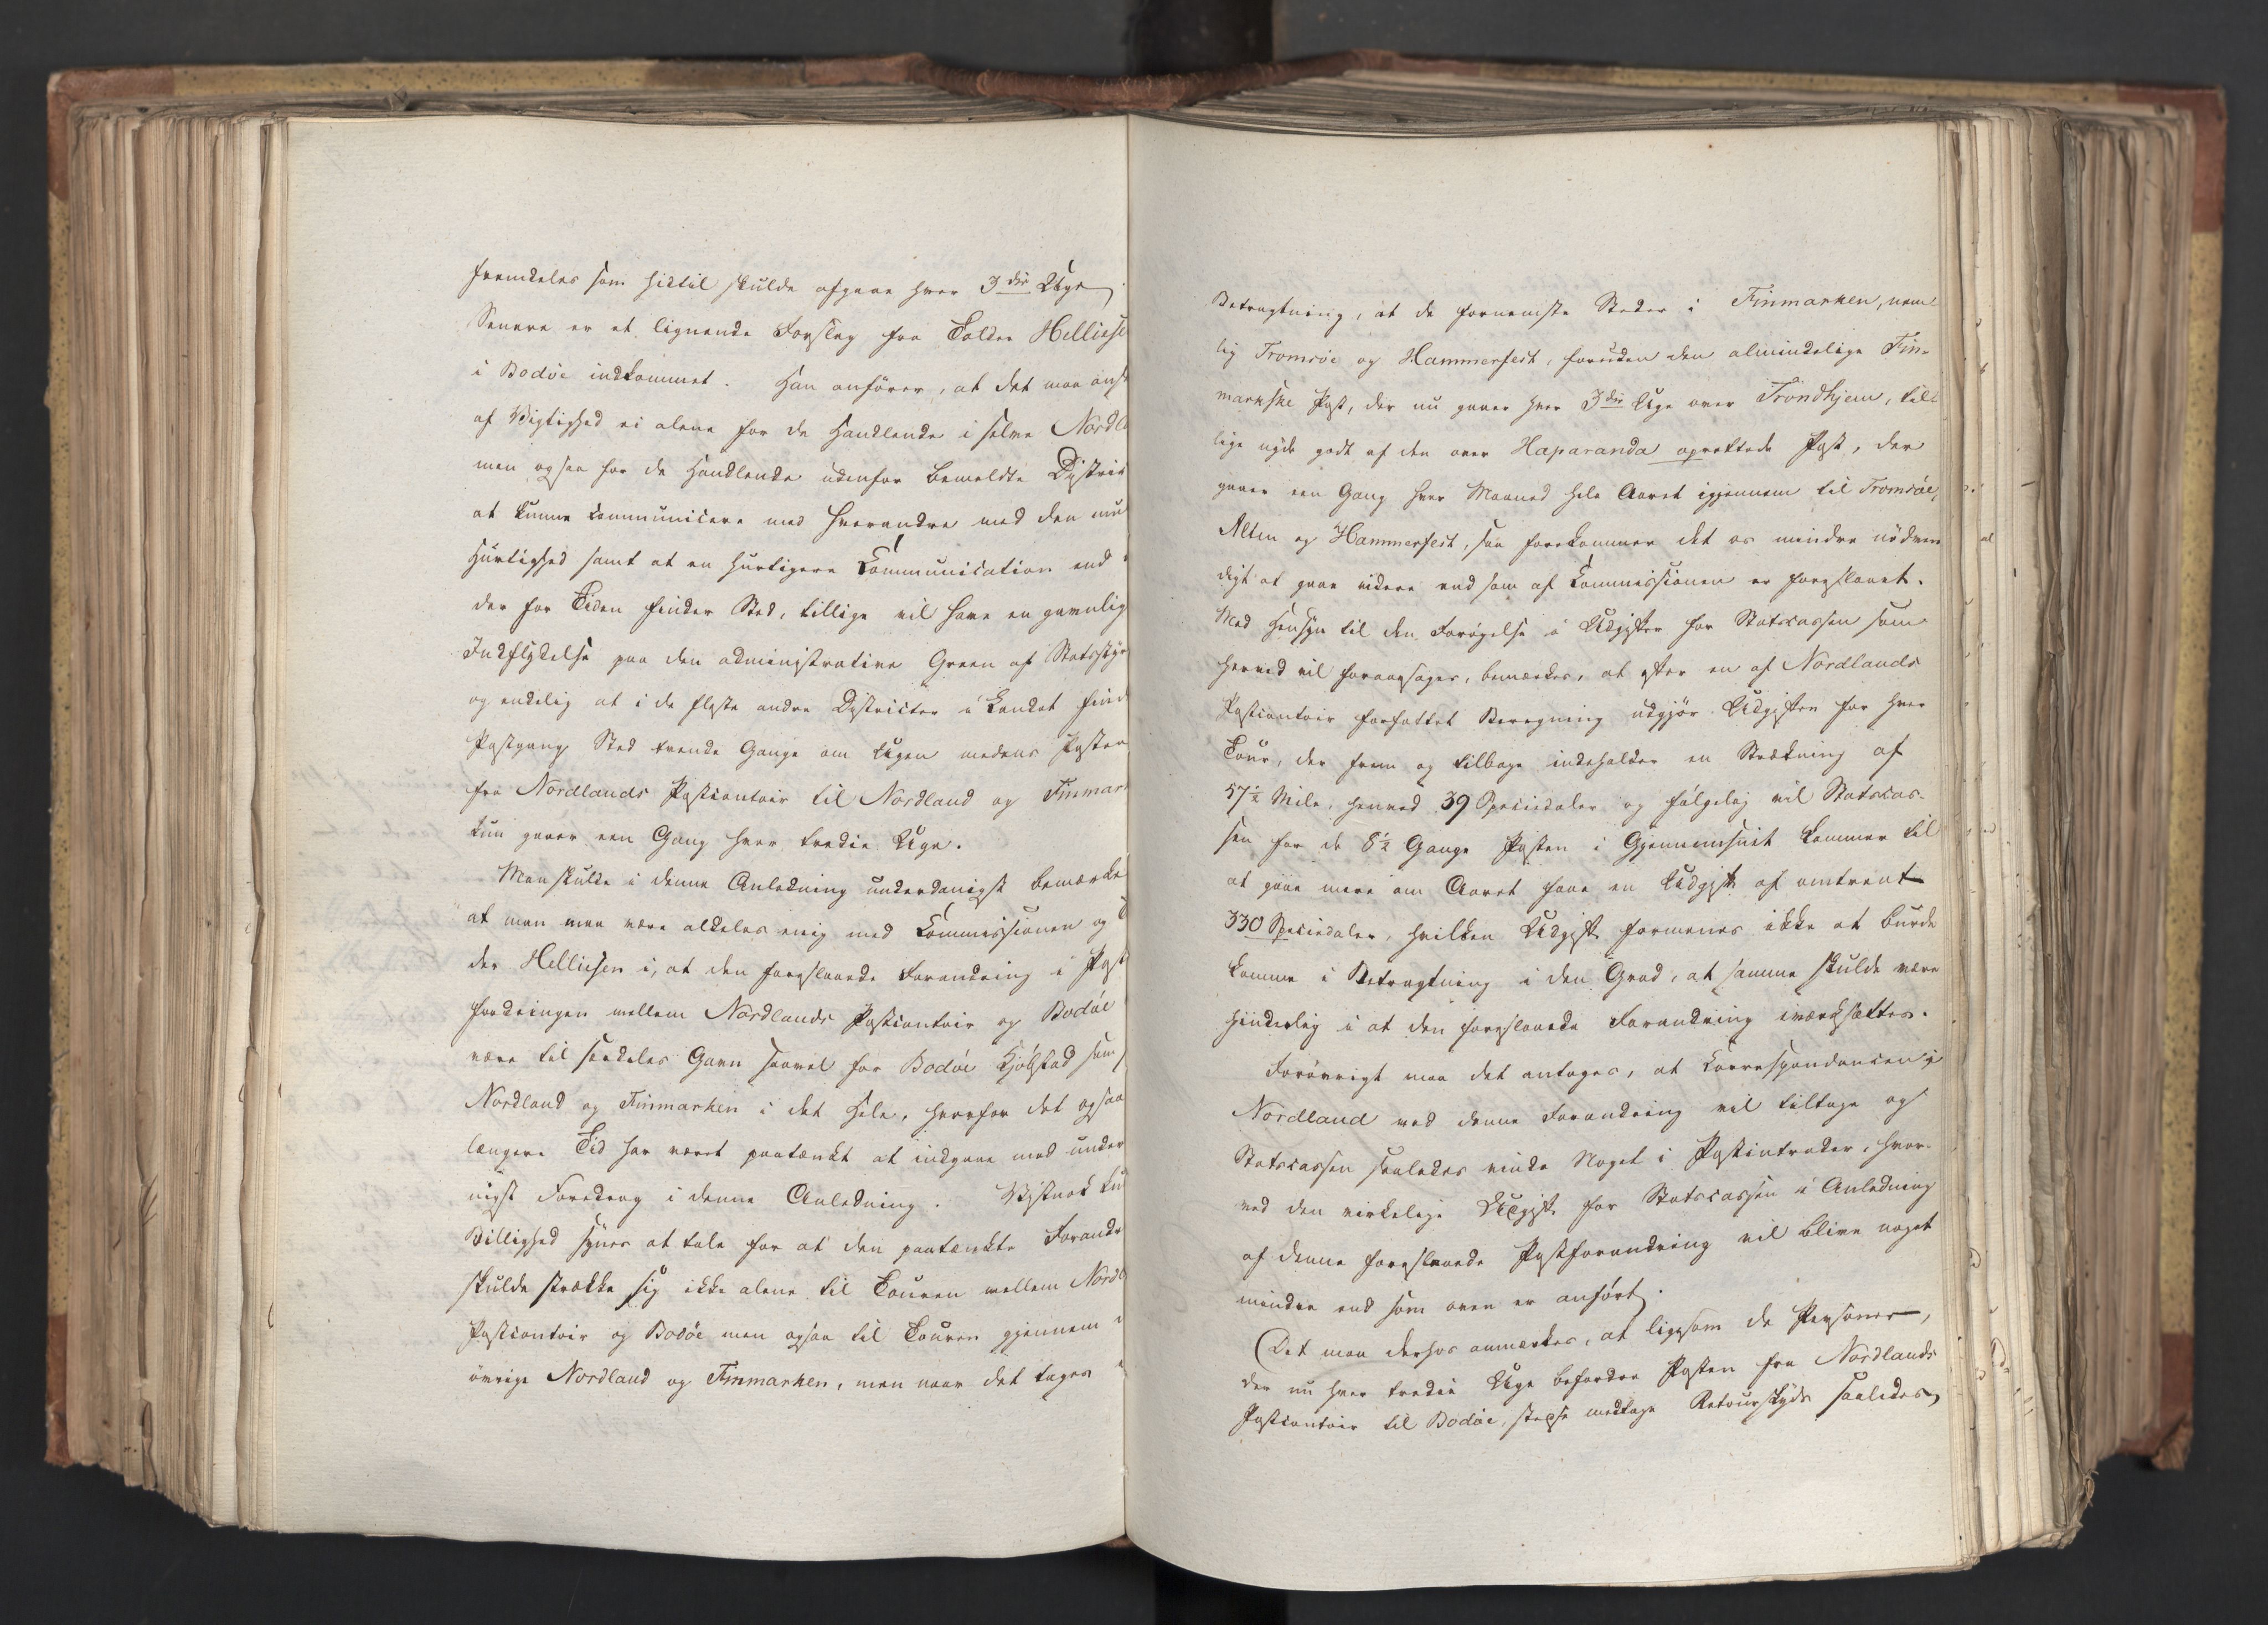 fremdeles som hidtil skulde afgaae hver 3die Uge
Senere er et lignende Forslag fra Tolder Helliese
i Bodöe indkommet. Han anfører, at det maa ans
af Vigtighed ei alene for de Handlende i selve Nordl
men ogsaa for de Handlende udenfor bemeldte Distric
at kunne communicere med hverandre med den mu
Hurtighed samt at en hurtigere Communication end
der for Tiden finder Sted, tillige vil have en gavnlig
Indflydelse paa den administrative Green af Statsstyr
og endelig at i de fleste andre Districter i Landet find
Postgang Sted tvende Gange om Ugen medens Posten
fra Nordlands Postcontoir til Nordland og Finmar
kun gaaer een Gang hver tredie Uge.
Man skulde i denne Anledning underdanigst bemærke
at man maa være aldeles enig med Commissionen og
der Helliesen i, at den foreslaaede Forandring i Post
fordringen mellem Nordlands Postcontoir og Bodöe
være til særdeles Gavn saavel for Bodöe Kjöbstad som
Nordland og Finmarken i det Hele, hvorfor det ogsaa
længere Tid har været paatænkt at indgaae med under
nigst Foredrag i denne Anledning. Vistnok kun
Billighed synes at tale for at den paatænkte Forandr
skulde strække sig ikke alene til Touren mellem Nordl
Postcontoir og Bodöe men ogsaa til Touren gjennem
övrige Nordland og Finmarken, men naar det tages
Betragtning, at de fornemste Steder i Finmarken, nem
lig Tromsöe og Hammerfest, foruden den almindelige Fin-
markske Post, der nu gaaer hver 3die Uge over Trondhjem, till
lige nyde godt af den over Haparanda oprettede Post, der
gaaer een Gang hver Maaned hele Aaret igjennem til Tromsöe,
Alten og Hammerfest, saa forekommer det os mindre nödven
digt at gaae videre end som af Commissionen er foreslaaet.
Med Hensyn til den Forögelse i Udgifter for Statscassen som
herved vil foraarsages, bemærkes, at efter en af Nordlands
Postcontoir forfattet Beregning udgjör Udgiften for hver
Tour, der frem og tilbage indeholder en Strækning af
57½ Mile, henved 39 Speciedaler og fölgelig vil Statscas-
sen for de 8½ Gange Posten i Gjennemsnit kommer til
at gaae mere om Aaret faae en Udgift af omtrent
330 Speciedaler, hvilken Udgift formenes ikke at burde
komme i Betragtning i den Grad, at samme skulde være
hinderlig i at den foreslaaede Forandring iværksættes.
Forövrigt maa det antages, at Correspondancen i
Nordland ved denne Forandring vil tiltage og
Statscassen saaledes vinde Noget i Postintrader, hvor-
ved den virkelige Udgift for Statscassen i Anledning
af denne foreslaaede Postforandring vil blive noget
mindre end som oven er anfört.
Det maa derhos anmærkes, at ligesom de Personer,
der nu hver tredie Uge befordre Posten fra Nordlands
Postcontoir til Bodöe, medtage Retourskyds saaledes